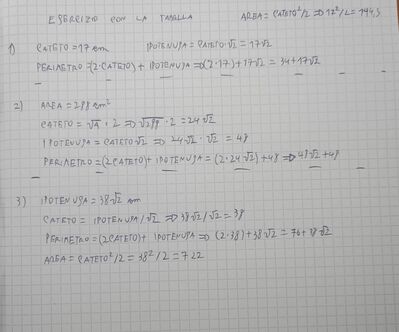 ESERCIZIO CON LA TABELLA AREA = CATETO²/2 ⇒ 17²/2 = 144,5
1) CATETO = 17 cm IPOTENUSA = CATETO·√2 = 17√2
PERIMETRO = (2·CATETO) + IPOTENUSA ⇒ (2·17) + 17√2 = 34 + 17√2
2) AREA = 288 cm²
CATETO = √A · 2 ⇒ √288 · 2 = 24√2
IPOTENUSA = CATETO √2 ⇒ 24√2 · √2 = 48
PERIMETRO = (2CATETO) + IPOTENUSA = (2·24√2) + 48 ⇒ 48√2 + 48
3) IPOTENUSA = 38√2 cm
CATETO = IPOTENUSA/√2 ⇒ 38√2/√2 = 38
PERIMETRO = (2CATETO) + IPOTENUSA ⇒ (2·38) + 38√2 = 76 + 38√2
AREA = CATETO²/2 = 38²/2 = 722